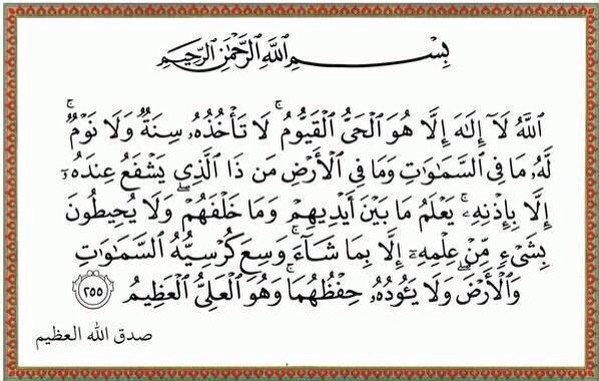 بِسْمِ اللَّهِ الرَّحْمَٰنِ الرَّحِيمِ
اللَّهُ لَآ إِلَٰهَ إِلَّا هُوَ الْحَيُّ الْقَيُّومُ ۚ لَا تَأْخُذُهُۥ سِنَةٌ وَلَا نَوْمٌ ۚ
لَّهُۥ مَا فِى السَّمَٰوَٰتِ وَمَا فِى الْأَرْضِ مَن ذَا الَّذِى يَشْفَعُ عِندَهُۥٓ
إِلَّا بِإِذْنِهِۦ ۚ يَعْلَمُ مَا بَيْنَ أَيْدِيهِمْ وَمَا خَلْفَهُمْ ۖ وَلَا يُحِيطُونَ
بِشَىْءٍ مِّنْ عِلْمِهِۦٓ إِلَّا بِمَا شَآءَ ۚ وَسِعَ كُرْسِيُّهُ السَّمَٰوَٰتِ
وَالْأَرْضَ ۖ وَلَا يَـُٔودُهُۥ حِفْظُهُمَا ۚ وَهُوَ الْعَلِىُّ الْعَظِيمُ ٢٥٥
صدق الله العظيم